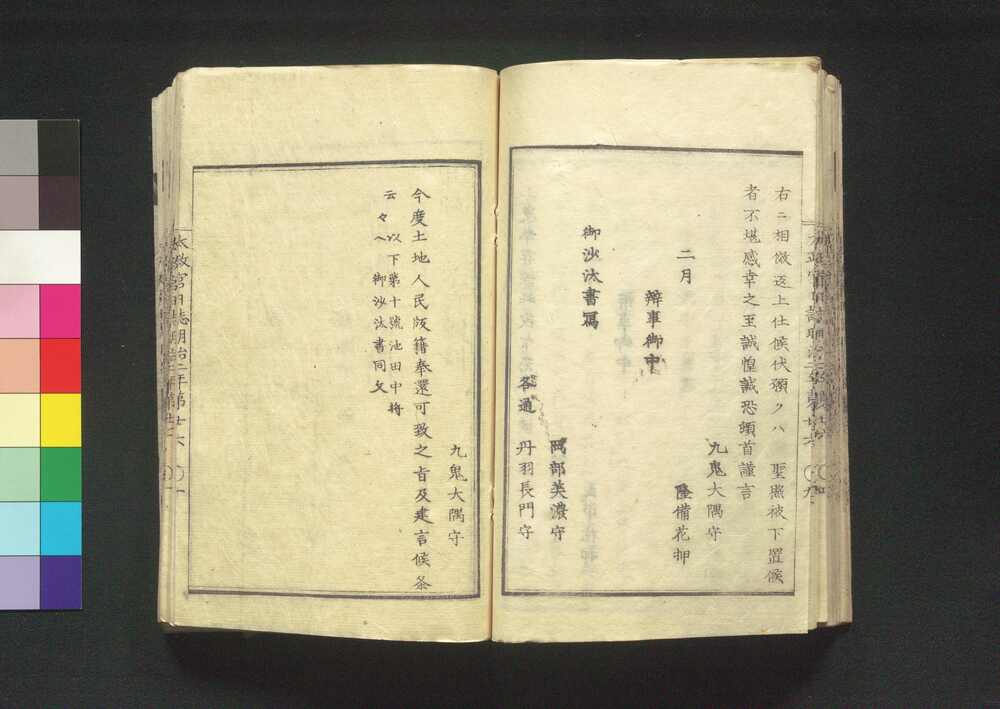 右ニ相傚返上仕候伏願クハ　聖照被下置候
者不堪感幸之至誠惶誠恐頓首謹言
九鬼大隅守
隆備花押
二月
辨事御中
御沙汰書寫
阿部美濃守
各通　丹羽長門守
九鬼大隅守
今度土地人民版籍奉還可致之旨及建言候条
云々 以下第十號池田中将
へ御沙汰書同文
太政官日誌明治二年第廿六